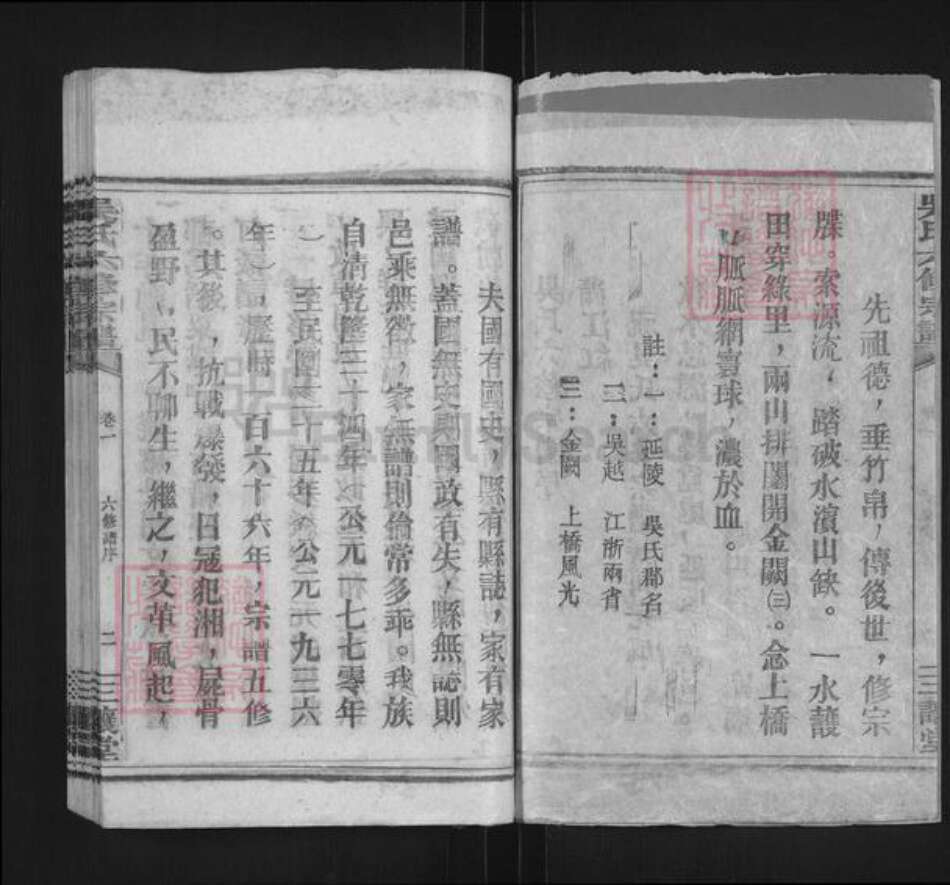 先祖德，垂竹帛，傳後世，修宗
牒。索源流，踏破水濱山缺。一水護
田穿綠里，兩山排闥開金闕㈢。念上橋
脈脈網寰球，濃於血。
註：一：延陵　吳氏郡名
二：吳越　江浙兩省
三：金闕　上橋風光
吳氏六修宗譜
三讓堂
夫國有國史，縣有縣誌，家有家
譜。蓋國無史則國政有失，縣無誌則
邑乘無徵，家無譜則倫常多乖。我族
自清乾隆三十四年（公元一七七零年
）至民國二十五年（公元一九三六
年），歷時一百六十六年，宗譜五修
。其後，抗戰爆發，日冠犯湘，屍骨
盈野，民不聊生，繼之，文革風起，
吳氏六修宗譜
卷一
六修譜序
二
三讓堂